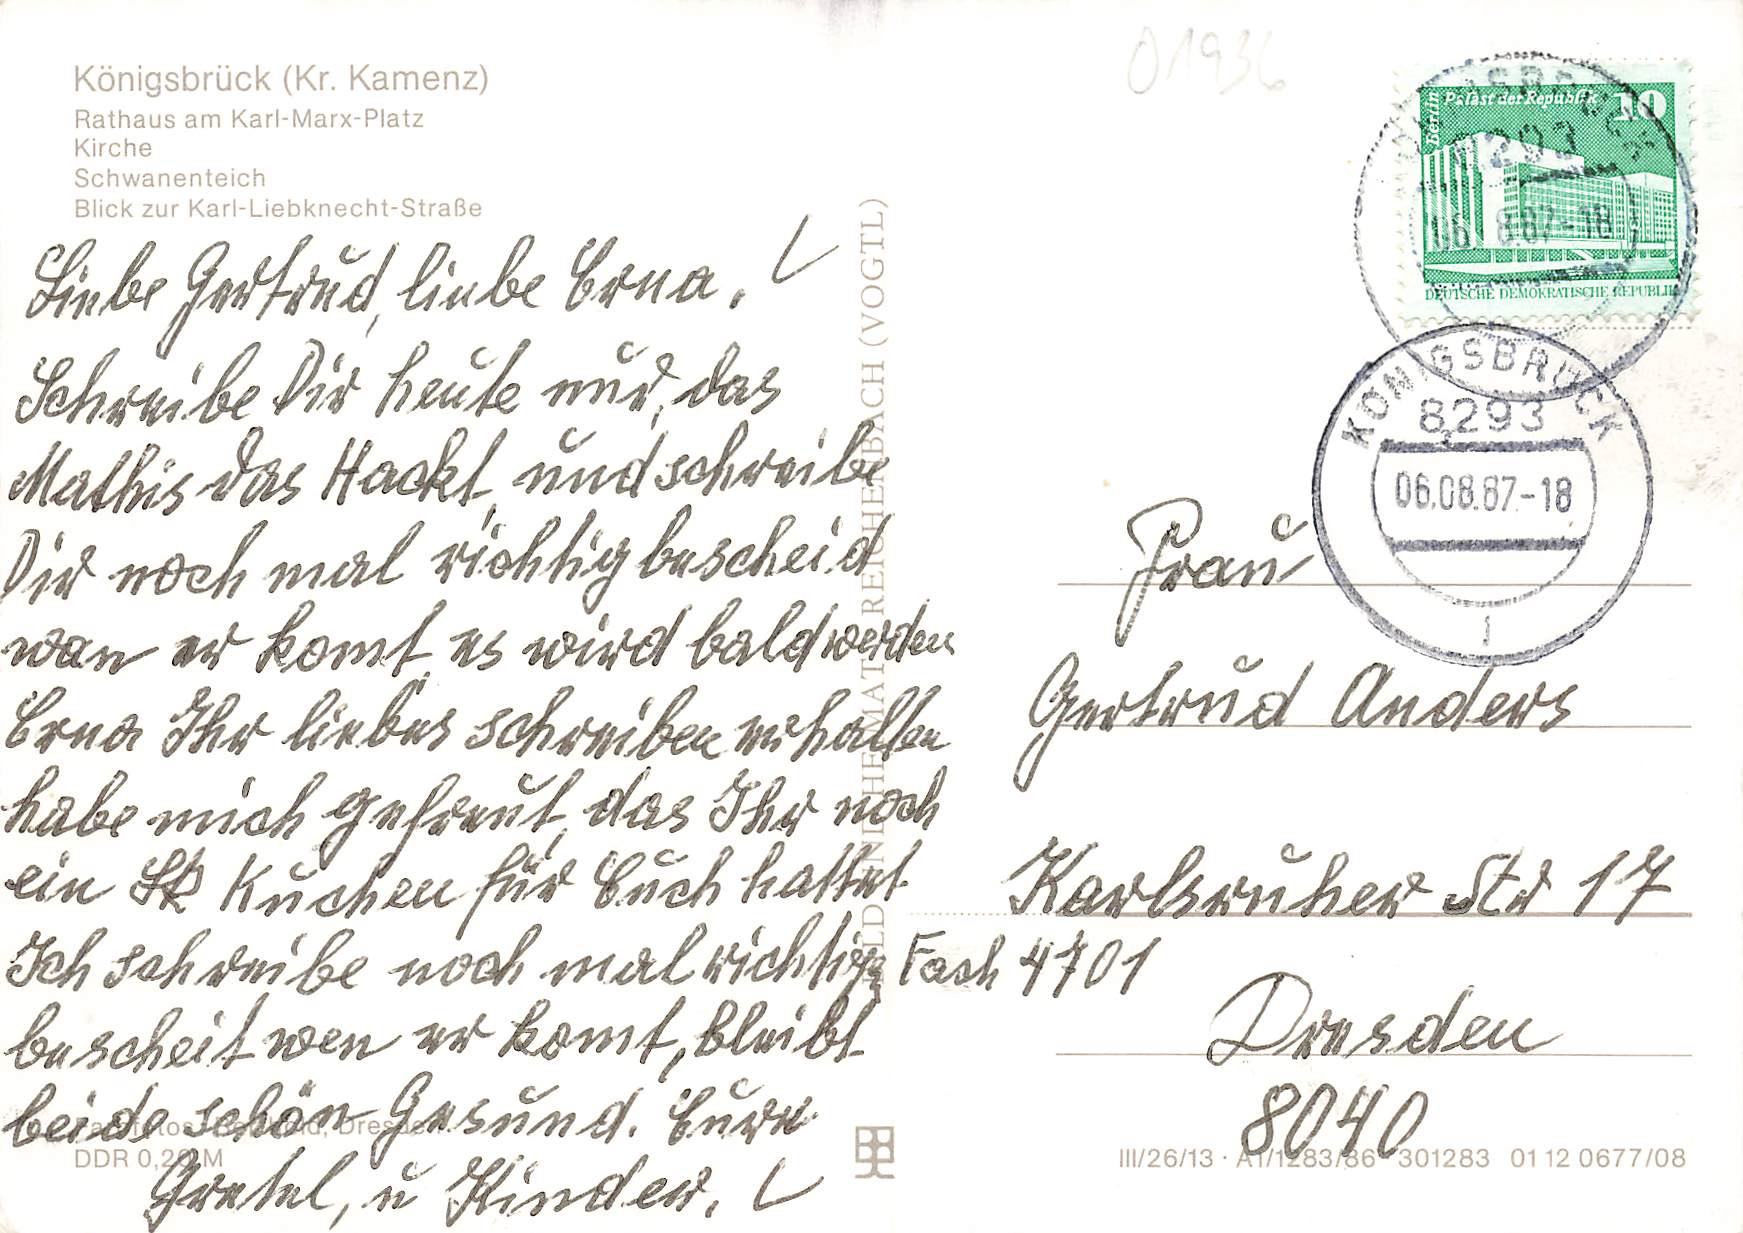 Königsbrück (Kr. Kamenz)
Rathaus am Karl-Marx-Platz
Kirche
Schwanenteich
Blick zur Karl-Liebknecht-Straße
Liebe Gertrud, liebe Erna.
Schreibe Dir heute nur, das
Mathis das Hackt, und schreibe
Dir noch mal richtig bescheid
wan er komt, es wird bald werden
Erna Ihr liebes schreiben erhalten
habe mich gefreut, das Ihr noch
ein St Kuchen für Euch hattet
Ich schreibe noch mal richtig
bescheit wen er komt, bleibt
beide schön Gesund. Eure
Gretel, u Kinder.
DDR 0,20 M
BILD UND HEIMAT REICHENBACH (VOGTL)
01936
Berlin Palast der Republik 10
DEUTSCHE DEMOKRATISCHE REPUBLIK
KÖNIGSBRÜCK
8293
06.08.87-18
KÖNIGSBRÜCK
8293
06.08.87-18
1
Frau
Gertrud Anders
Karlsruher Str 17
Fach 4701
Dresden
8040
III/26/13 · A1/1283/86 301283 01 12 0677/08